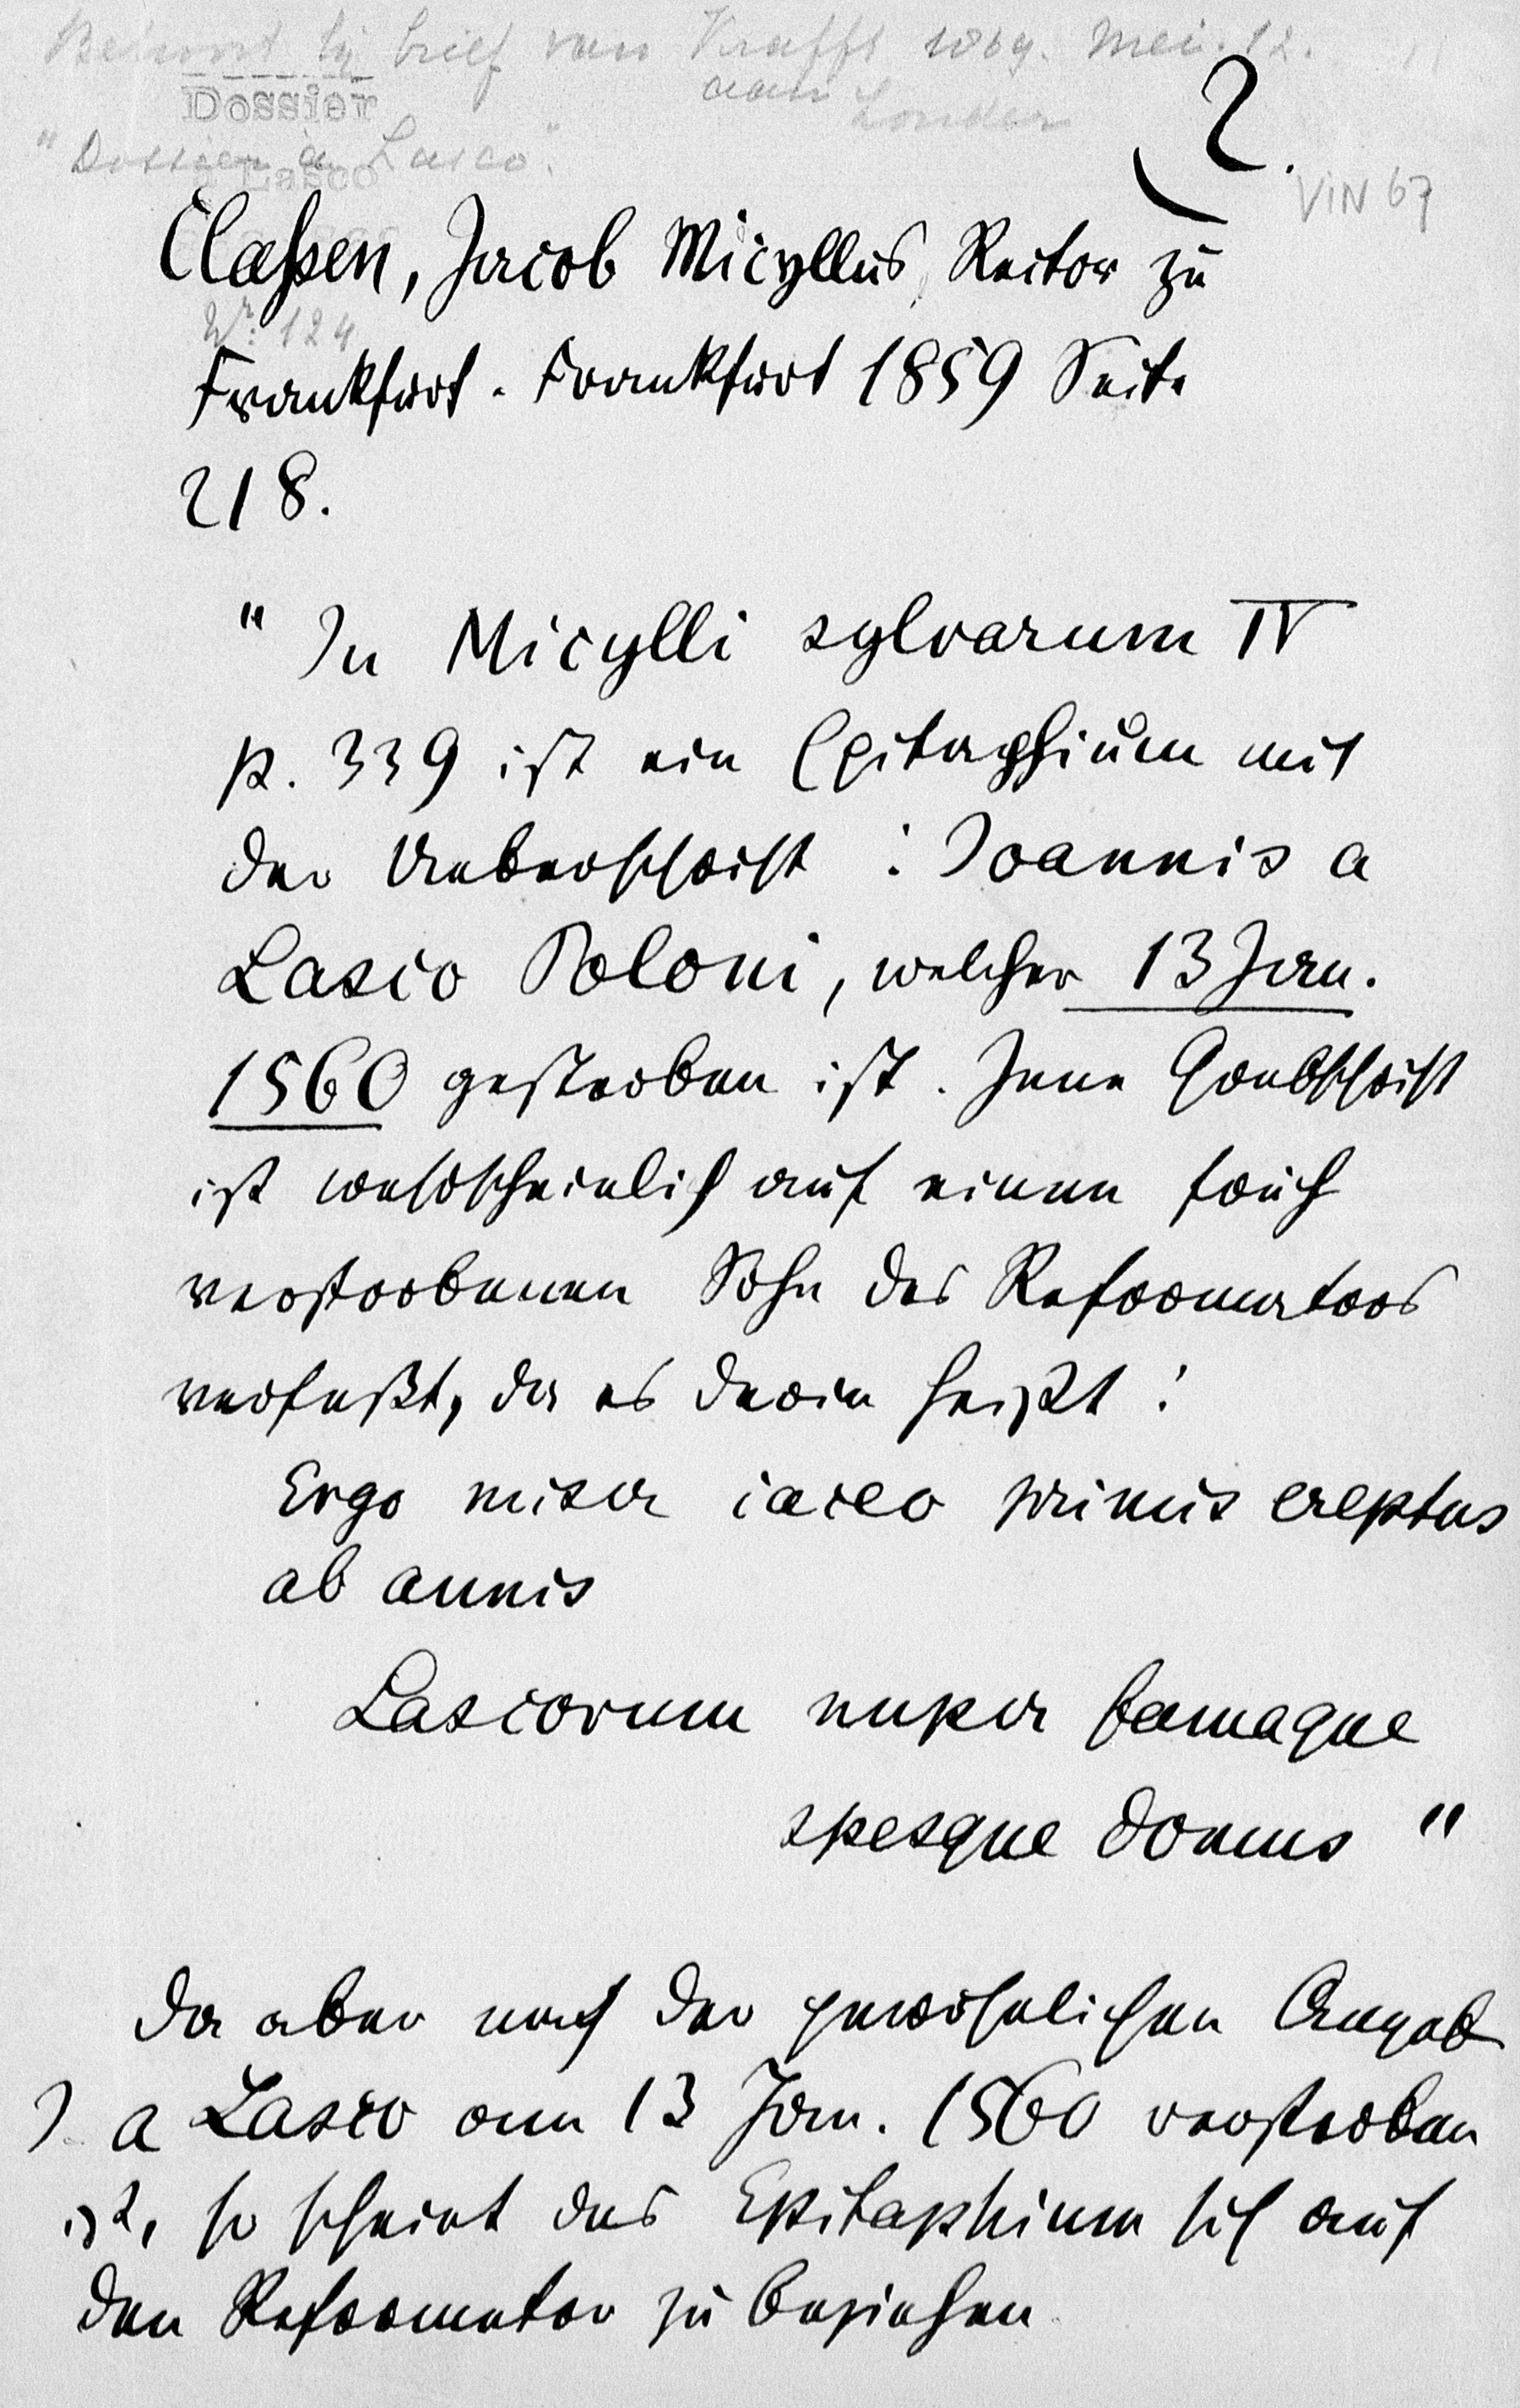 Behoort bij brief van Krafft 1869. Mei. 12.
aan
Dossier
"Dossier à Lasco".
a Lasco
2.
VIN 67
Claßen, Jacob Micyllus, Rector zu
Nr. 124
Frankfurt. Frankfurt 1859 Seite
218.
" In Micylli sylvarum IV
p. 339 ist ein Epitaphium mit
der Ueberschrift : Joannis a
Lasco Poloni, welcher 13 Jan.
1560 gestorben ist. Jene Grabschrift
ist wahrscheinlich auf einen früh
verstorbenen Sohn des Reformators
verfaßt, da es darin heißt :
Ergo miser iaceo primis ereptus
ab annis
Lascorum nuper famaque
spesque domus "
da aber nach der gewöhnlichen Angabe
J. a Lasco am 13 Jan. 1560 verstorben
ist, so scheint das Epitaphium sich auf
den Reformator zu beziehen.